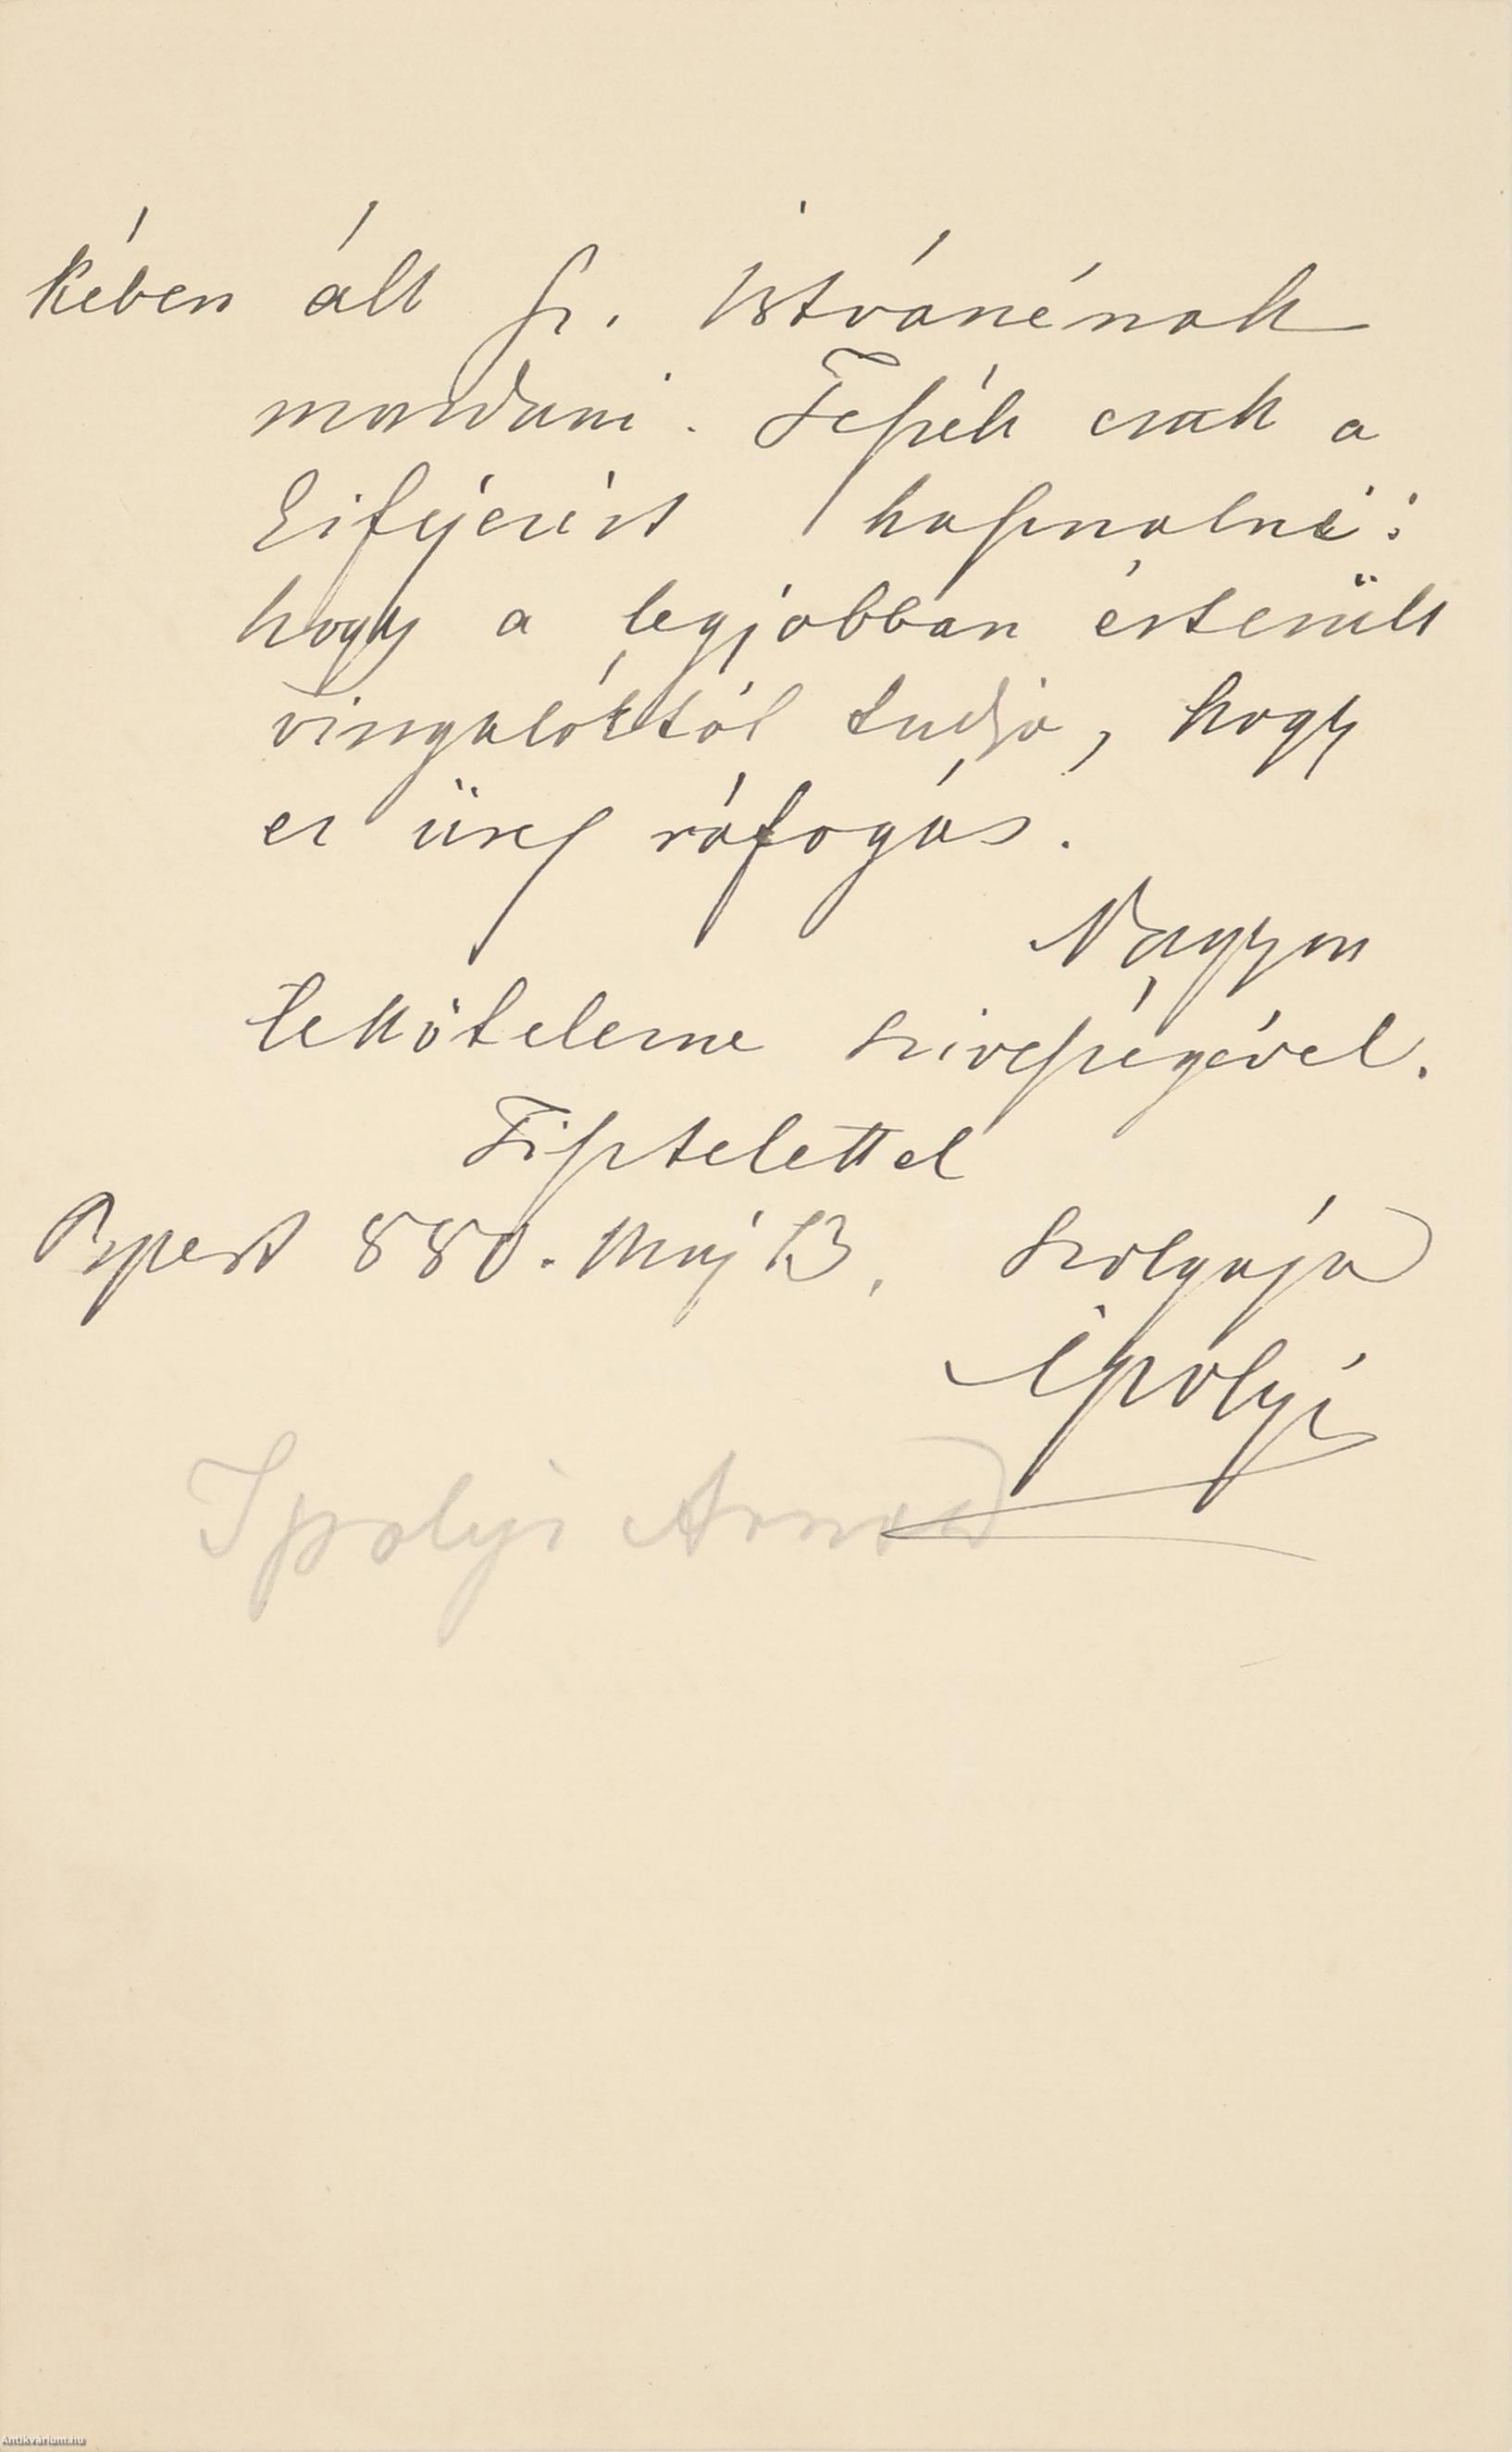 kében ált Sz. Istvánénak
mondani. Tessék csak a
kifejezést használni:
hogy a legjobban értesült
vizsgálóktól tudja, hogy
ez üres ráfogás.
Nagyon
lekötelezne szivességével.
Tisztelettel
Bpest 880. Maj 13. szolgája
Ipolyi
Ipolyi Arnold
Antikvárium.hu